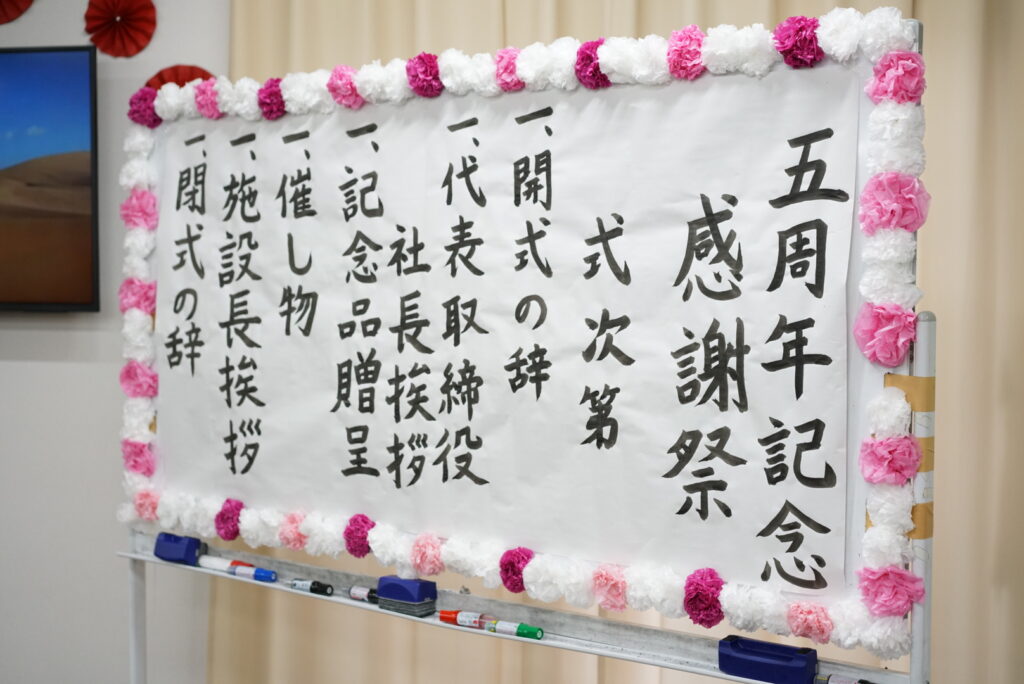 五周年記念
感謝祭
式次第
一、開式の辞
一、代表取締役
社長挨拶
一、記念品贈呈
一、催し物
一、施設長挨拶
一、閉式の辞